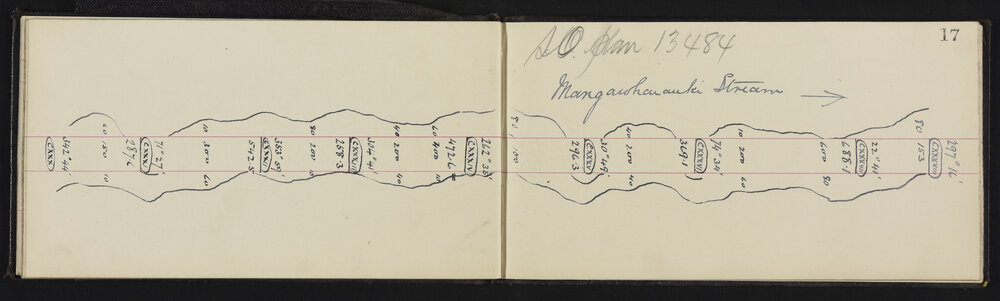 17
S.O. Plan 13484
Mangawharauki Stream
CXXX
342° 44'
60 150 10
287.6
CXXXI
71° 27'
10 300 60
542.5
CXXXII
353° 59'
80 200 10
258.3
CXXXIII
304° 41'
40 200 40
60 400 10
472.6
CXXXIV
262° 35'
80 100
296.3
CXXXV
40 200 40
349.1
CXXXVI
74° 34'
10 200 60
600 80
688.1
CXXXVII
22° 41'
80 153
CXXXVIII
297° 16'